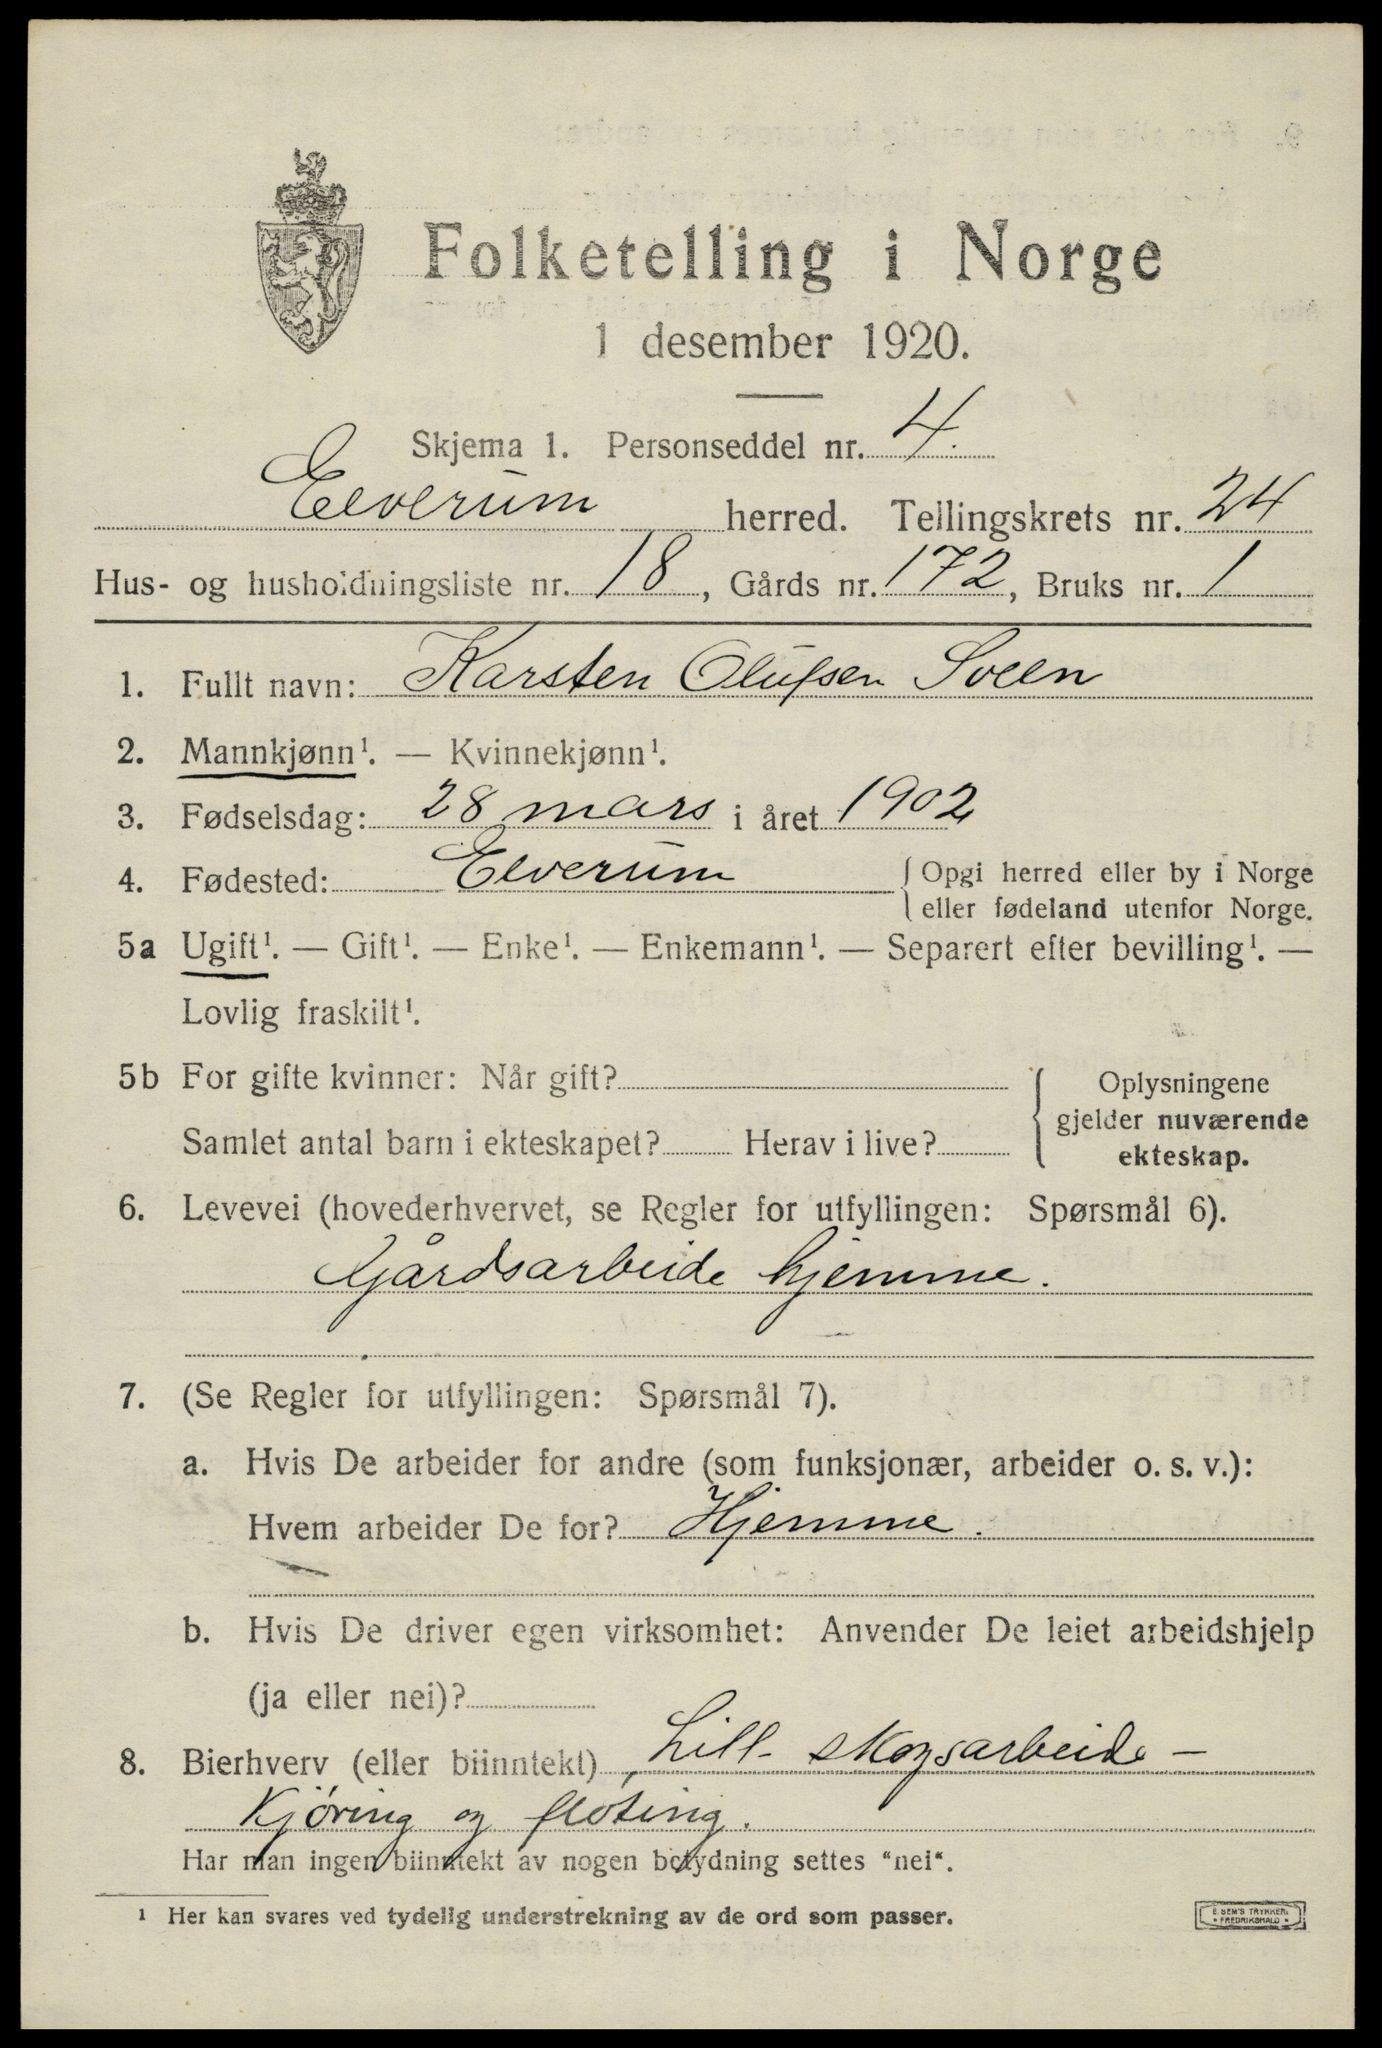 Folketelling i Norge
1 desember 1920.
Skjema 1. Personseddel nr. 4.
Elverum herred. Tellingskrets nr. 24
Hus- og husholdningsliste nr. 18, Gårds nr. 172, Bruks nr. 1
1. Fullt navn: Karsten Olufsen Sveen
2. Mannkjønn¹. — Kvinnekjønn¹.
3. Fødselsdag: 28 mars i året 1902
4. Fødested: Elverum { Opgi herred eller by i Norge
eller fødeland utenfor Norge.
5a Ugift¹. — Gift¹. — Enke¹. — Enkemann¹. — Separert efter bevilling¹. —
Lovlig fraskilt¹.
5b For gifte kvinner: Når gift?
Samlet antal barn i ekteskapet? Herav i live?
{ Oplysningene
gjelder nuværende
ekteskap.
6. Levevei (hovederhvervet, se Regler for utfyllingen: Spørsmål 6).
Gårdsarbeide hjemme.
7. (Se Regler for utfyllingen: Spørsmål 7).
a. Hvis De arbeider for andre (som funksjonær, arbeider o. s. v.):
Hvem arbeider De for? Hjemme.
b. Hvis De driver egen virksomhet: Anvender De leiet arbeidshjelp
(ja eller nei)?
8. Bierhverv (eller biinntekt) Litt skogsarbeide —
Kjøring og fløting.
Har man ingen biinntekt av nogen betydning settes "nei".
¹ Her kan svares ved tydelig understrekning av de ord som passer.
E. SEM'S TRYKKERI
• FREDRIKSHALD •